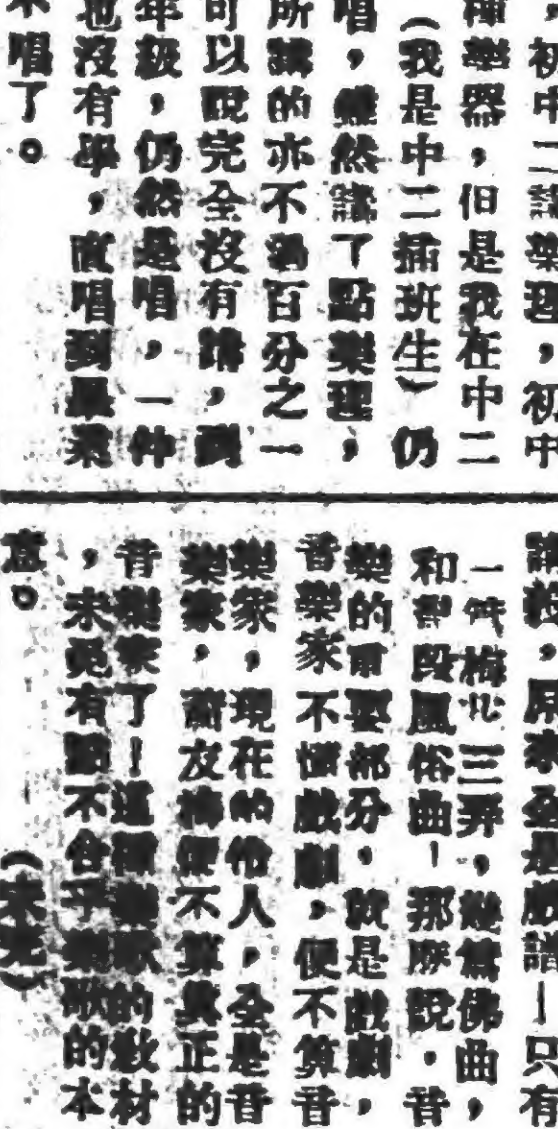 ，初中二講樂理，初中
種樂器，但是我在中二
（我是中二插班生）仍
唱，雖然講了點樂理，
所講的亦不過百分之一
可以說完全沒有講，到
年級，仍然是唱，一件
也沒有學，直唱到畢業
不唱了。
，原來全是戲譜！只有
一 梅花三弄，幾篇佛曲，
和 段風俗曲！那麼說，音
樂的 要部分，就是戲劇，
音樂家不懂戲劇，便不算音
樂家，現在的伶人，全是音
樂家，蕭友梅便不算真正的
音樂家了！這 的教材
，未免有點不合乎 歌的本
意。 （未完）